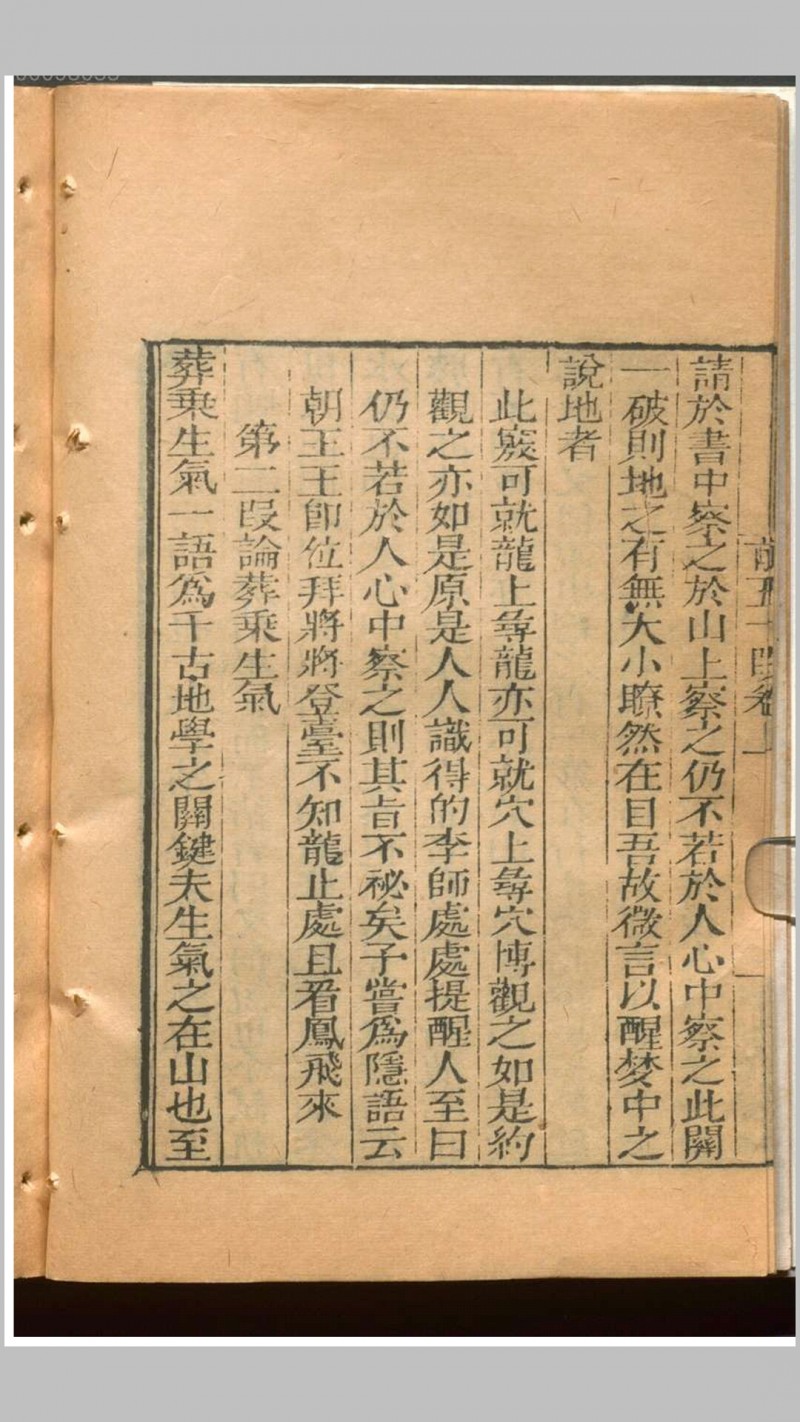 請於書中察之於山上察之仍不若於人心中察之此關
一破則地之有無大小瞭然在目吾故微言以醒梦中之
說地者
此窽可就龍上尋龍亦可就穴上尋穴博觀之如是約
觀之亦如是原是人人識得的李師處處提醒人至曰
仍不若於人心中察之則其旨不祕矣予嘗爲隱語云
朝王王卽位拜將將登臺不知龍止處且看鳳飛來
第二段論葬乘生氣
葬乘生氣一語爲千古地學之關鍵夫生氣之在山也至